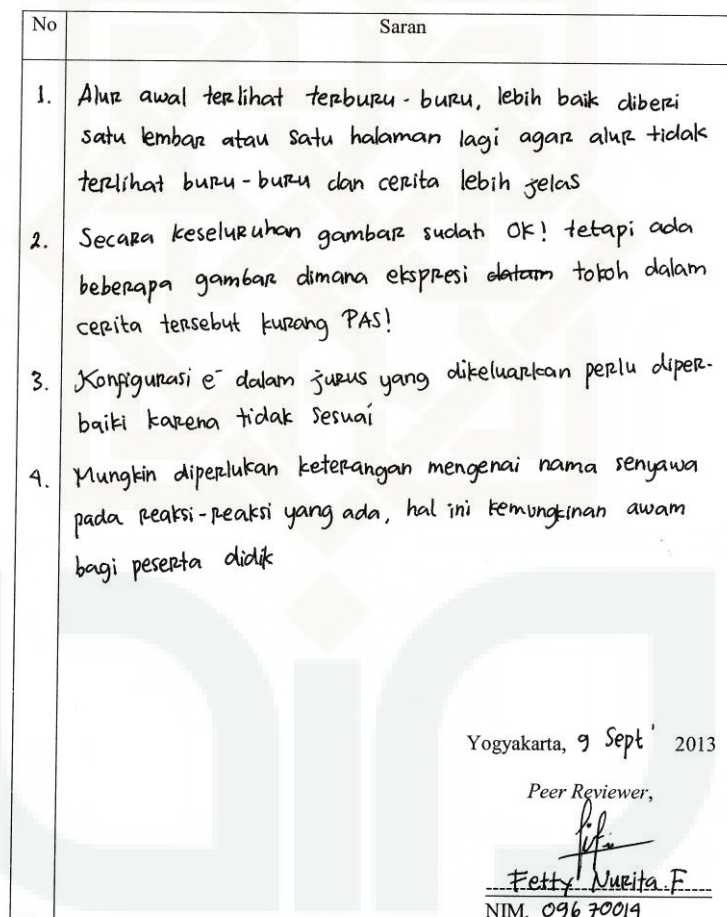 No Saran
1. Alur awal terlihat terburu-buru, lebih baik diberi
satu lembar atau satu halaman lagi agar alur tidak
terlihat buru-buru dan cerita lebih jelas
2. Secara keseluruhan gambar sudah OK! tetapi ada
beberapa gambar dimana ekspresi dalam tokoh dalam
cerita tersebut kurang PAS!
3. Konfigurasi e⁻ dalam jurus yang dikeluarkan perlu diper-
baiki karena tidak sesuai
4. Mungkin diperlukan keterangan mengenai nama senyawa
pada reaksi-reaksi yang ada, hal ini kemungkinan awam
bagi peserta didik
Yogyakarta, 9 Sept' 2013
Peer Reviewer,
Fetty Nurita.F
NIM. 09670014